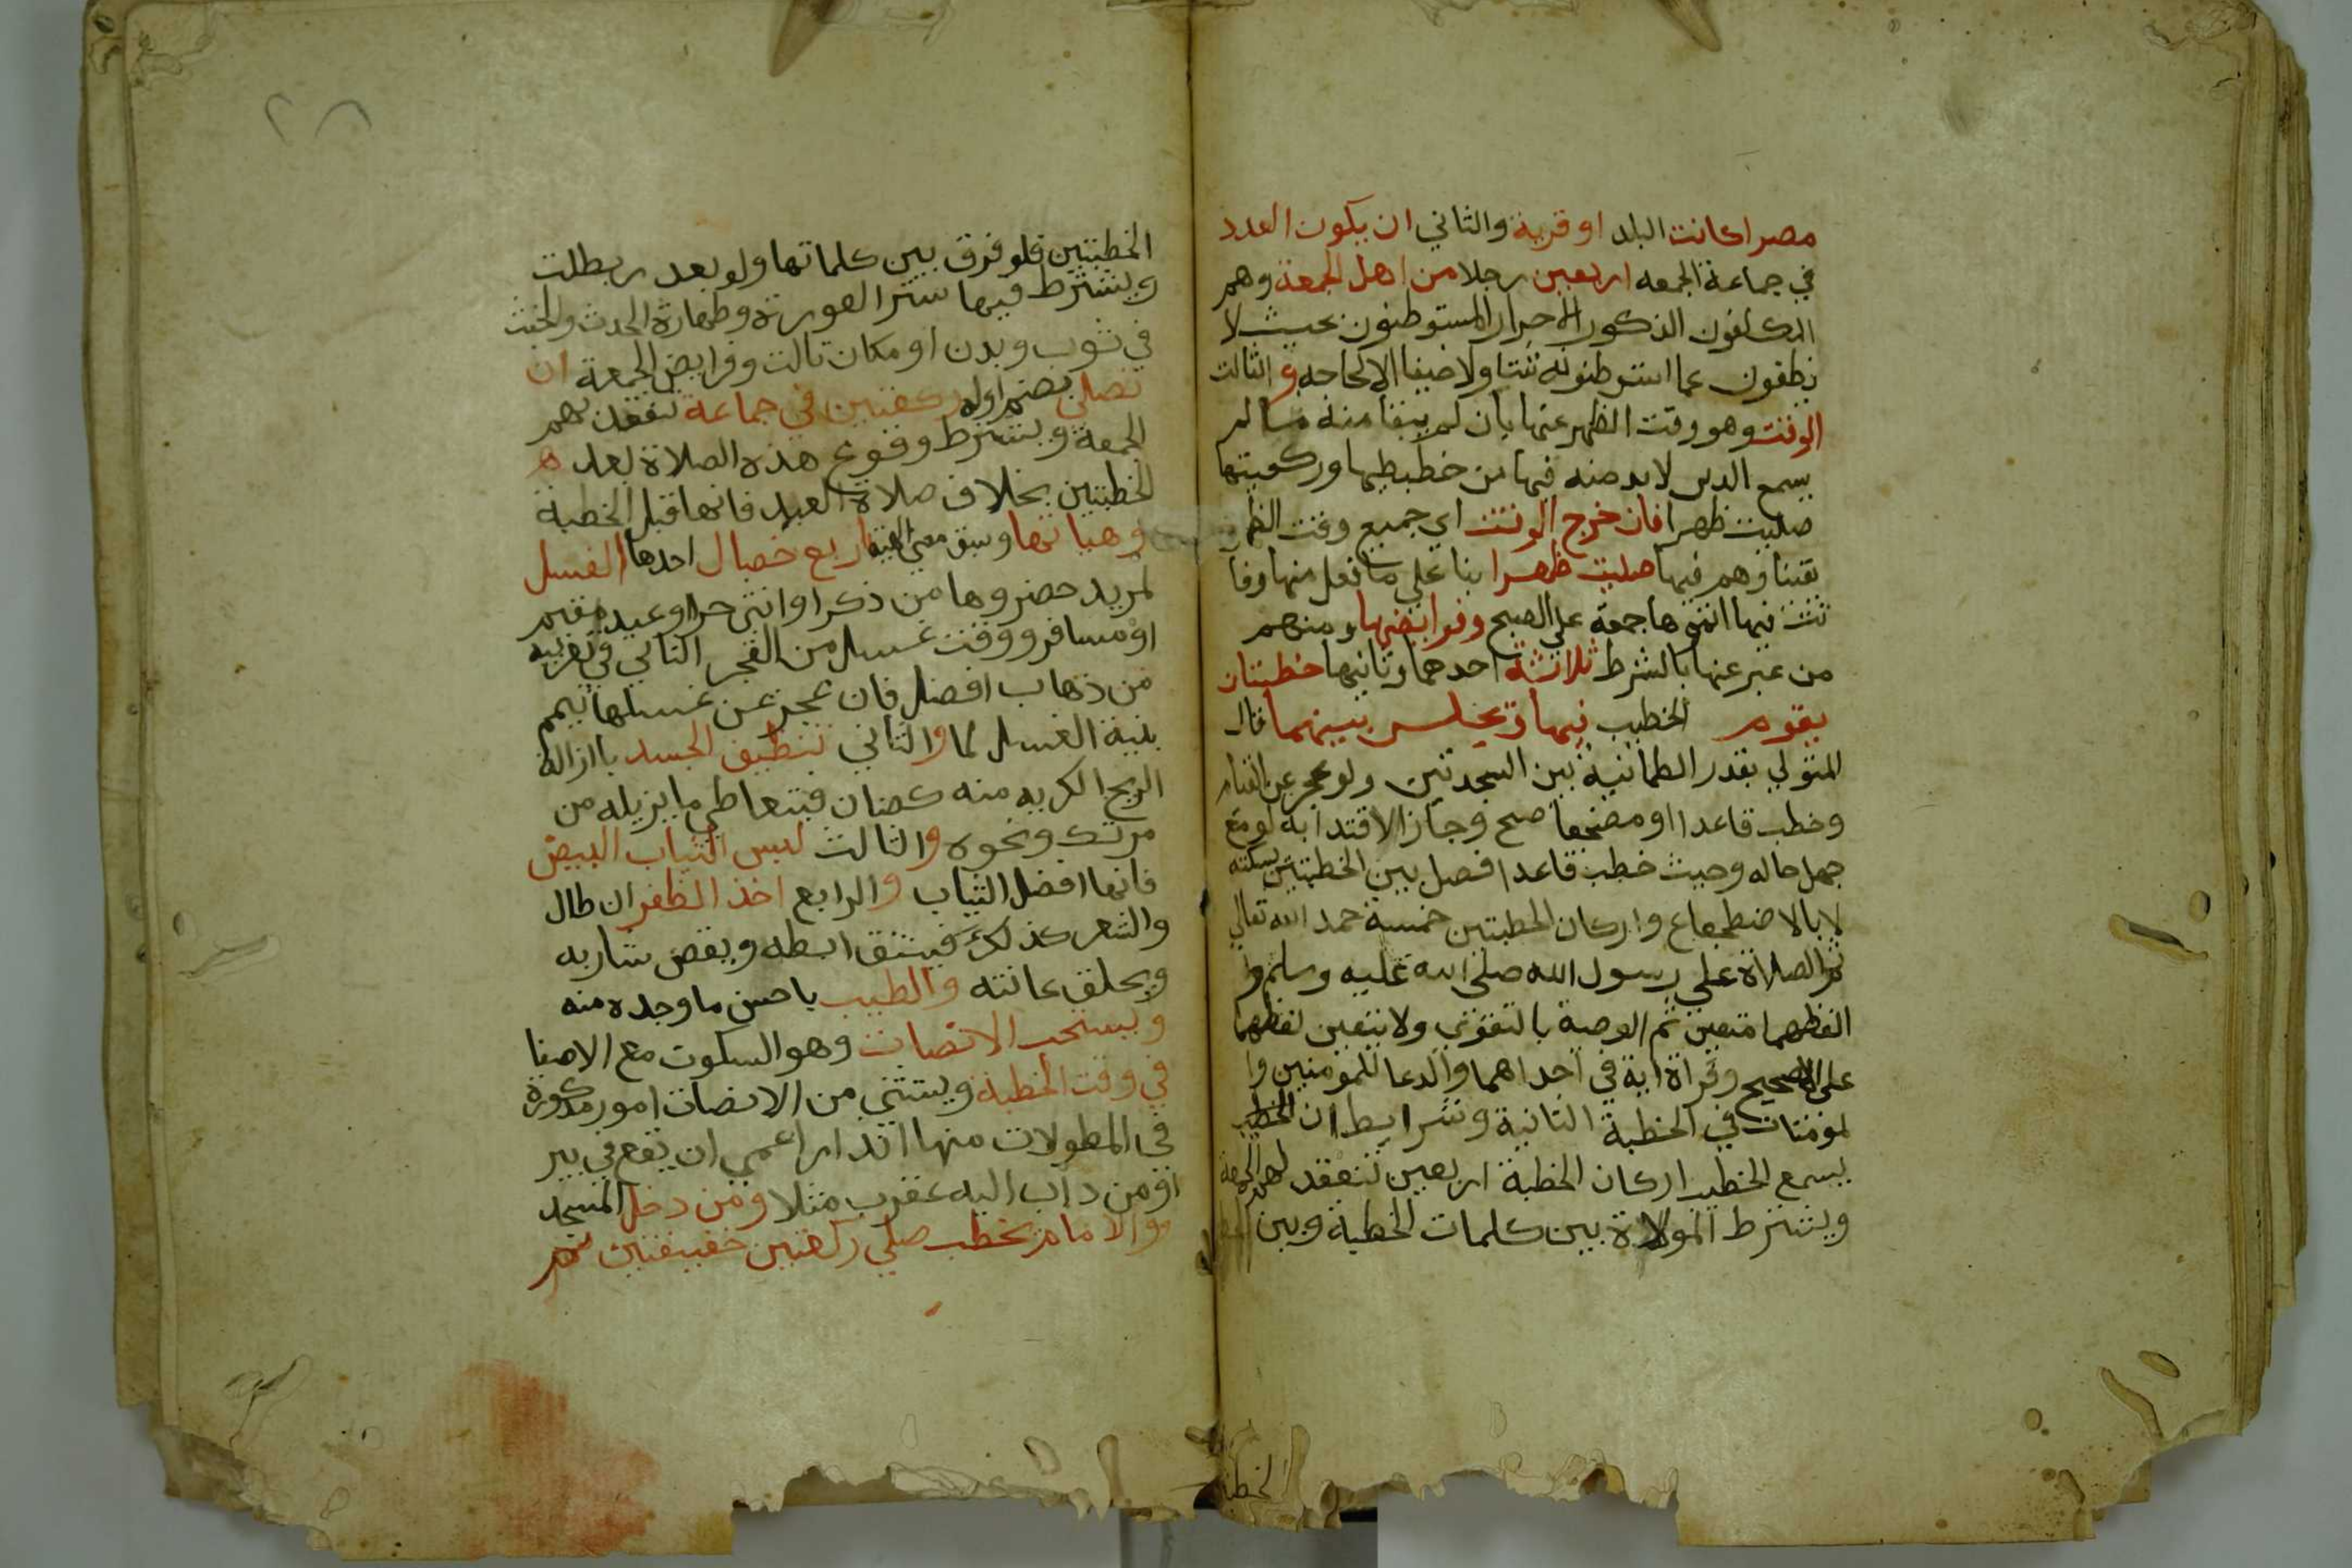 مصرا كانت البلد او قرية والثاني ان يكون العدد
في جماعة الجمعه اربعين رجلا من اهل الجمعة وهم
المكلفون الذكور الاحرار المستوطنون بحيث لا
يظعنون عما استوطنوه شتا ولا صيفا الا لحاجه و الثالث
الوقت وهو وقت الظهر عنها بان لم يبقا منه ما لم
يسع الدس لابد منه فيها من خطبطيها وركعيتها
صليت ظهرا فان خرج الوقت اي جميع وقت الظهر
يقينا وهم فيها صليت ظهرا بنا على ما فعل منها وفا
تت فيها اتموها جمعة على الصحيح وفرايضها ومنهم
من عبر عنها بالشرط ثلاثة احدهما وثانيها خطبتان
يقوم الخطيب فيهما ويجلس بينهما قال
المتولي بقدر الطمانية بين السجدتين ولو عجز عن القيام
وخطب قاعدا او مضجعا صح وجاز الاقتدا به لو مع
جهل حاله وحيث خطب قاعدا فصل بين الخطبتين بسكته
لا بالاضطجاع واركان الخطبتين خمسة حمد الله تعالى
ثم الصلاة على رسول الله صلى الله عليه وسلم و
الفظهما متعين ثم الوصية بالتقوى ولا يتعين لفظهما
على الصحيح وقراة اية في احداهما والدعا للمومنين وا
لمومنات في الخطبة الثانية وشرايط ان الخطيب
يسمع الخطيب اركان الخطبة اربعين تنعقد لهم الجمعة
ويشترط المولاة بين كلمات الخطبة وبين
الخطبتين
الخطبتين فلو فرق بين كلماتها ولو بعد ر بطلت
ويشترط فيها ستر العورة وطهارة الحدث والخبث
في ثوب وبدن او مكان ثالث وفرايض الجمعة ان
تصلى بضم اوله ركعتين في جماعة تنعقد بهم
الجمعة ويشترط وقوع هذه الصلاة بعد ه
الخطبتين بخلاف صلاة العيد فانها قبل الخطبة
وهياتها وسبق معنى الهية اربع خصال احدها الغسل
لمريد حضروها من ذكر او انثى حر او عبد مقيم
او مسافر ووقت غسل من الفجر الثاني وتقريبه
من ذهاب افضل فان عجز عن غسلها تيمم
بنية الغسل لها والثاني تنظيف الجسد باازالة
الريح الكريه منه كصنان فيتعاطى ما يزيله من
مرتك ونحوه والثالث لبس الثياب البيض
فانها افضل الثياب والرابع اخذ الظفر ان طال
والشعر كذلك فينتف ابطه ويقص شاربه
ويحلق عانته والطيب باحسن ما وجده منه
ويستحب الانصات وهو السكوت مع الاصغا
في وقت الخطبة ويستثنى من الانصات امور مذكورة
في المطولات منها انذار اعمى ان يقع في بير
او من داب اليه عقرب مثلا ومن دخل المسجد
والامام يخطب صلى ركعتين خفيفتين ثم